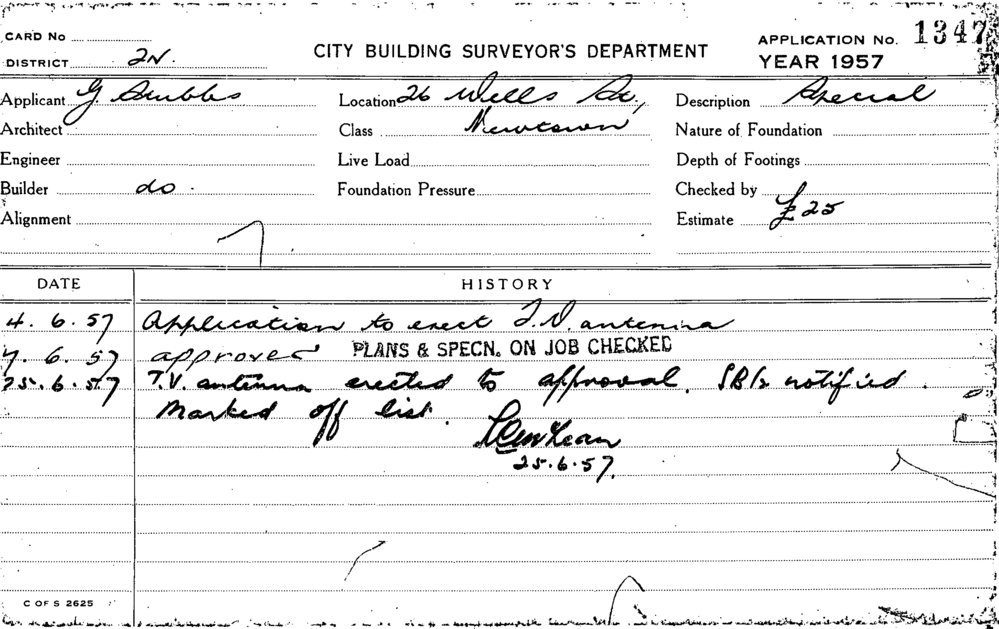 CARD No
CITY BUILDING SURVEYOR'S DEPARTMENT
APPLICATION No. 1347
DISTRICT 2N.
YEAR 1957
Applicant G. Stubbs Location 26 Wells St., Description Special
Architect Class Newtown Nature of Foundation
Engineer Live Load Depth of Footings
Builder do. Foundation Pressure Checked by
Alignment Estimate £25
DATE HISTORY
4.6.57 Application to erect T.V. antenna
7.6.57 approved PLANS & SPECN. ON JOB CHECKED
25.6.57 T.V. antenna erected to approval. notified.
Marked off list.
25.6.57.
C OF S 2625